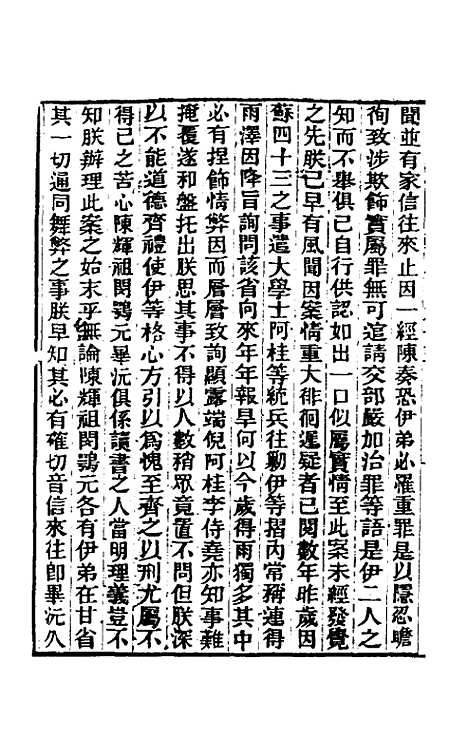 聞並有家信往來止因一經陳奏恐伊弟必罹重罪是以隱忍瞻
徇致涉欺飾實屬罪無可逭請交部嚴加治罪等語是伊二人之
知而不舉俱已自行供認如出一口似屬實情至此案未經發覺
之先朕已早有風聞因案情重大徘徊遲疑者已閱數年昨歲因
蘇四十三之事遣大學士阿桂等統兵往勦伊等摺內常稱連得
雨澤因降旨詢問該省向來年年報旱何以今歲得雨獨多其中
必有捏飾情弊因而層層致詢顯露端倪阿桂李侍堯亦知事難
掩覆遂和盤托出朕思其事不得以人數稍眾竟置不問但朕深
以不能道德齊禮使伊等格心方引以爲愧至齊之以刑尤屬不
得已之苦心陳輝祖閔鶚元畢沅俱係讀書之人當明理義豈不
知朕辦理此案之始末乎無論陳輝祖閔鶚元各有伊弟在甘省
其一切通同舞弊之事朕早知其必有確切音信來往卽畢沅久